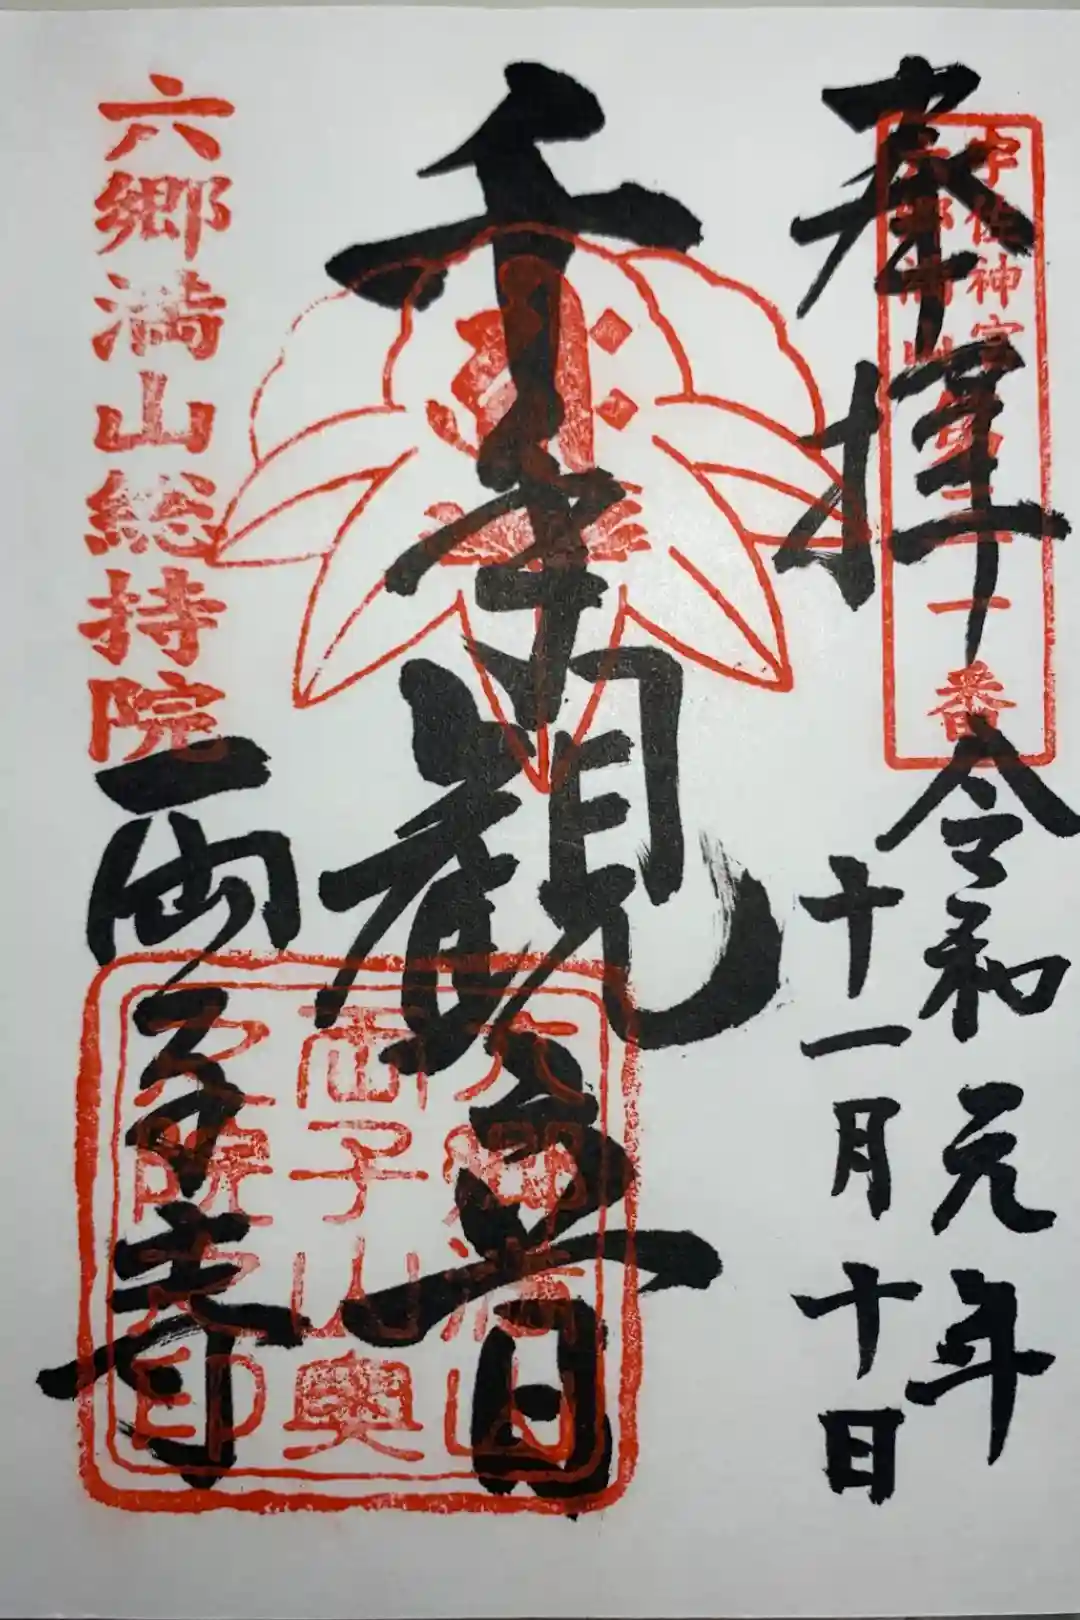 奉拝
宇佐神宮
六郷満山
一番
令和元年
十一月十日
千手観音
六郷満山
両子山奥
之院之印
六郷満山総持院
両子寺